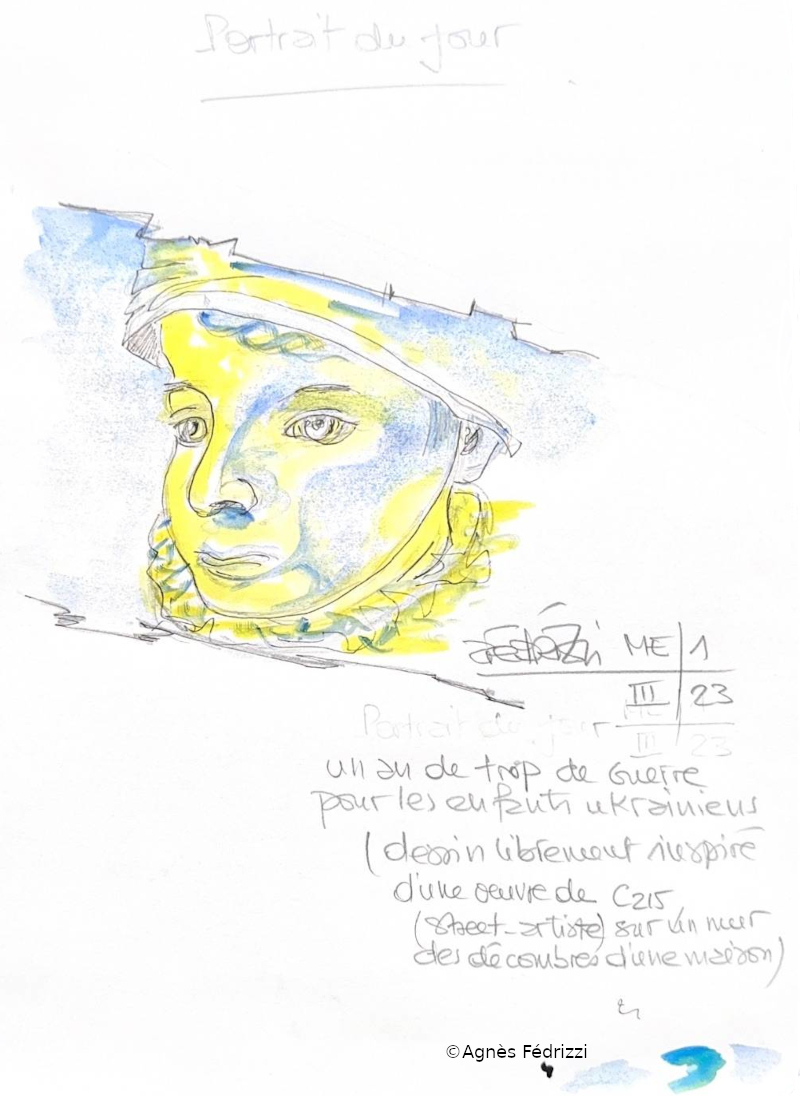 Portrait du jour
ME 1
III 23
Portrait du jour
III 23
un an de trop de Guerre
pour les enfants ukrainiens
(dessin librement inspiré
d'une oeuvre de C215
(Street-artiste) sur un mur
des décombres d'une maison)
©Agnès Fédrizzi